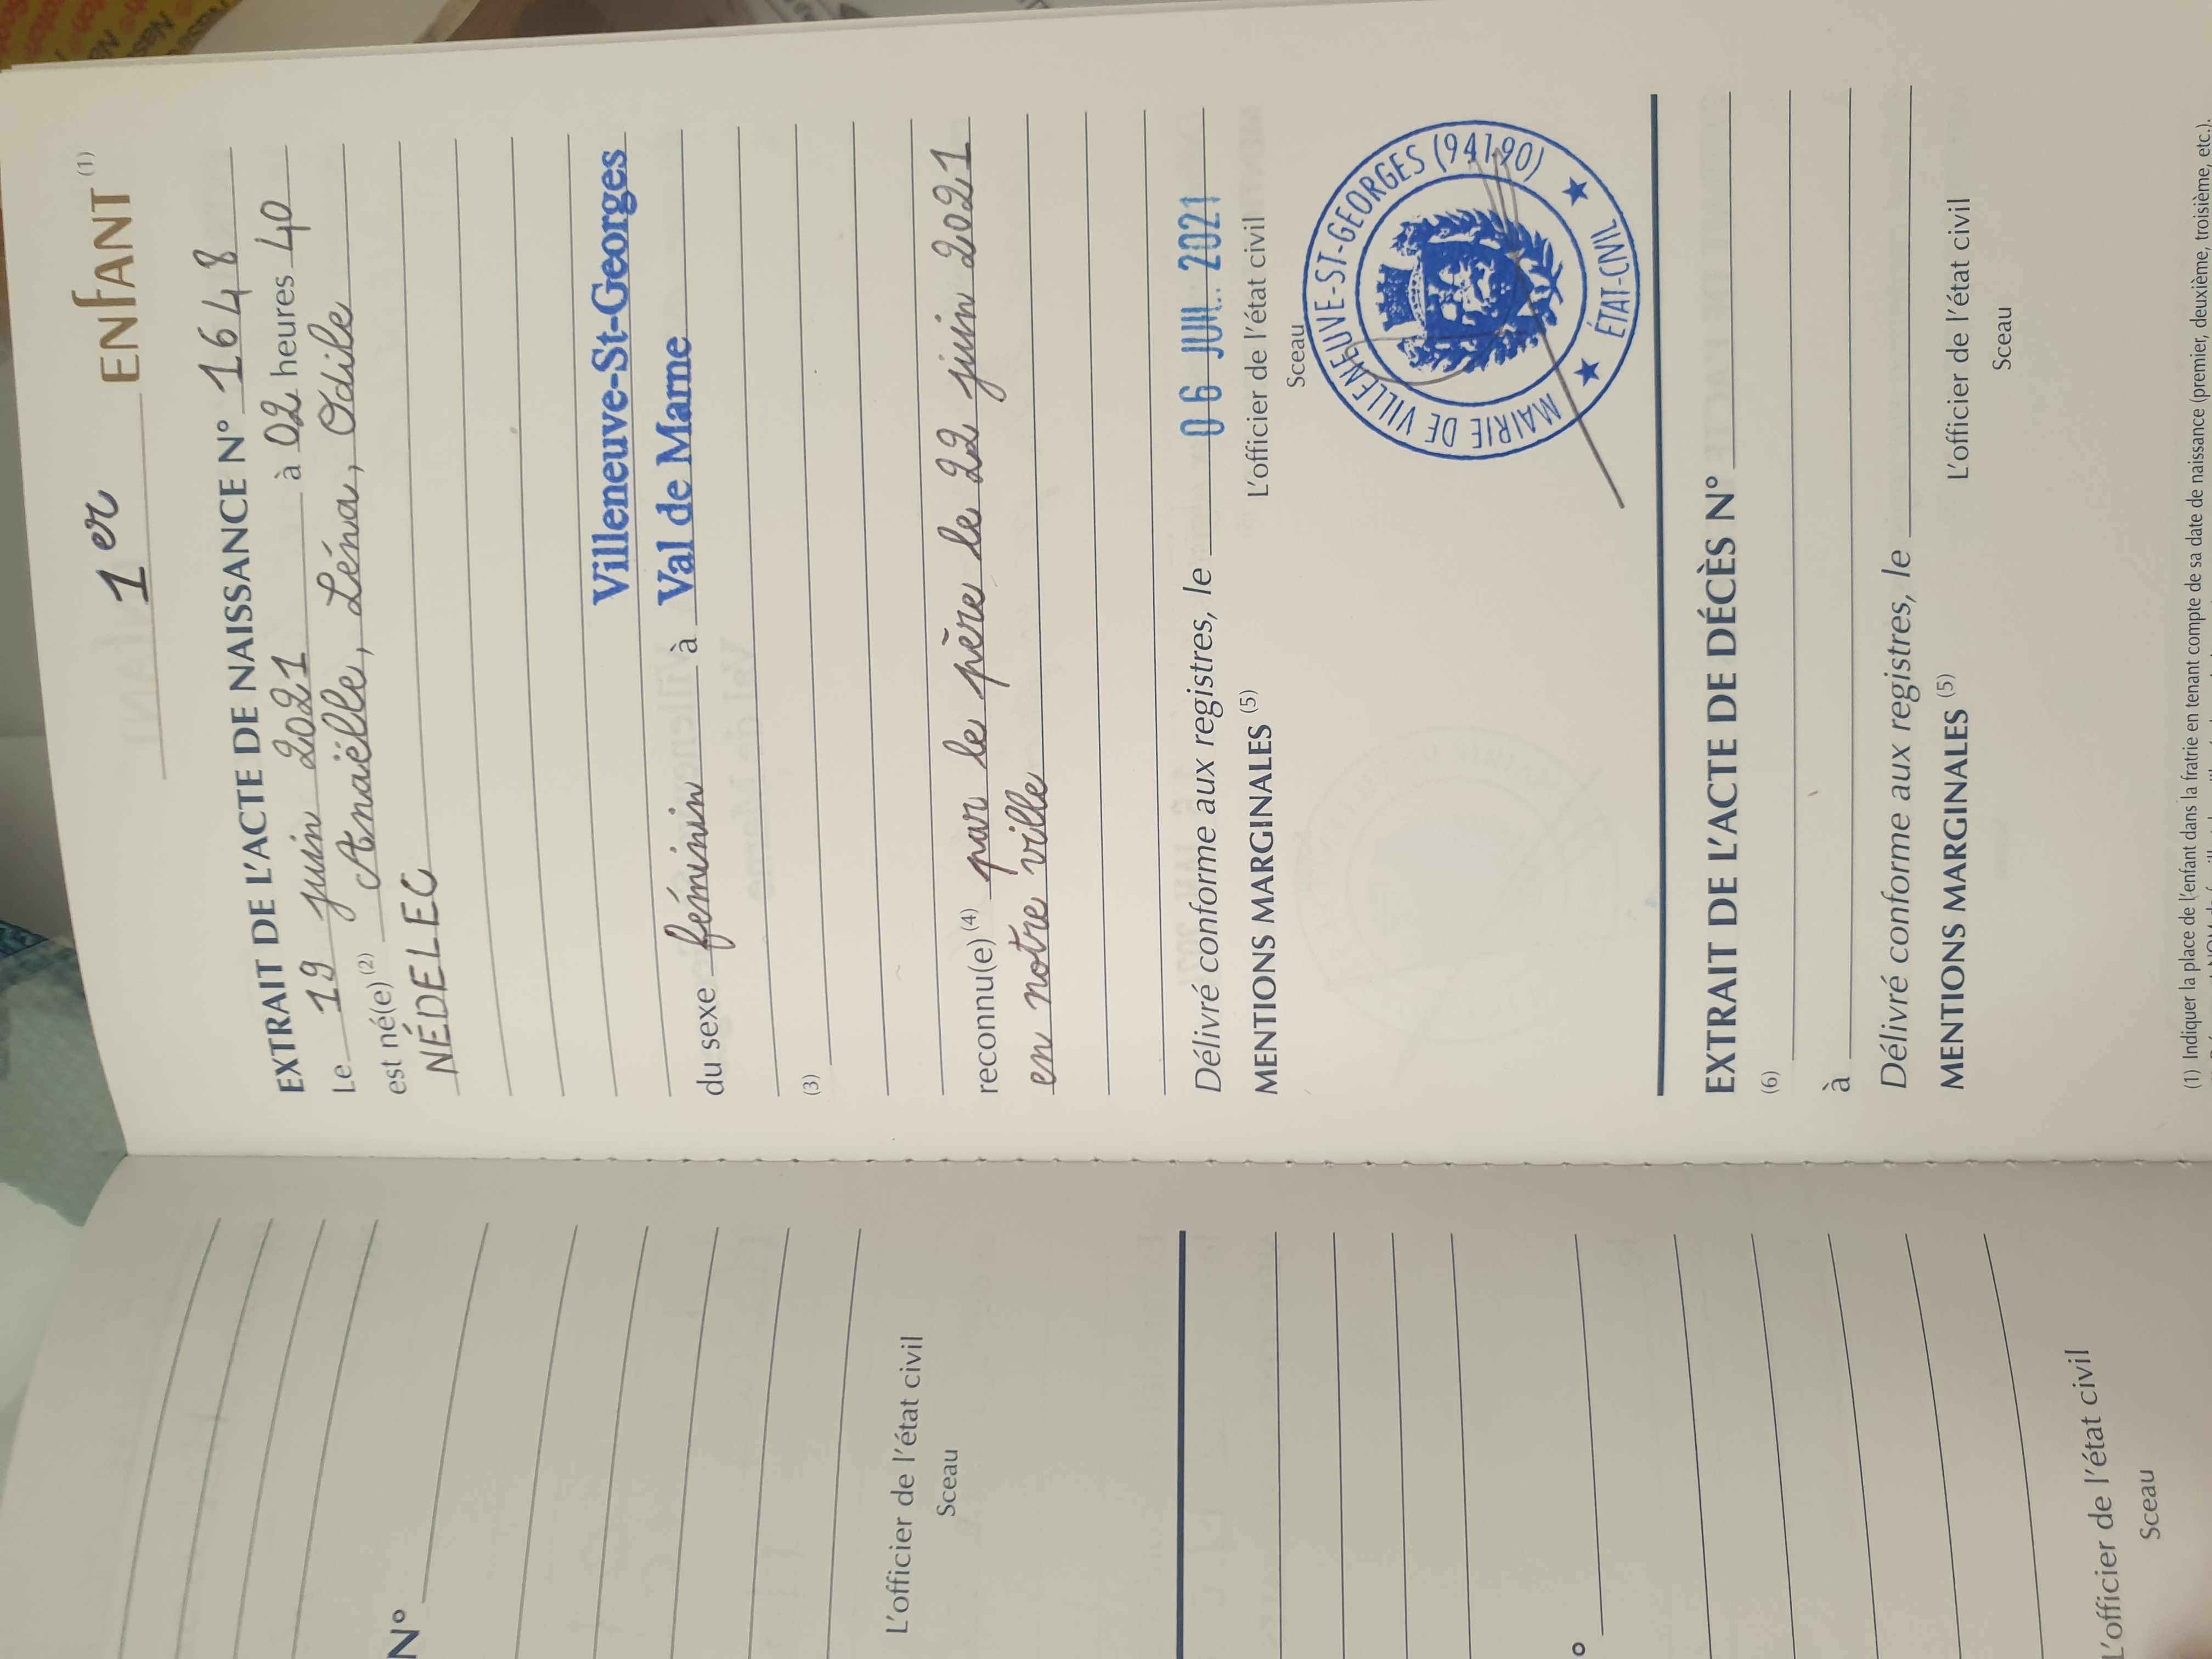 1er ENFANT (1)
EXTRAIT DE L'ACTE DE NAISSANCE N° 1648
Le 19 juin 2021 à 02 heures 40
est né(e) (2) Anaëlle, Léna, Odile
NÉDELEC
Villeneuve-St-Georges
du sexe féminin à Val de Marne
(3)
reconnu(e) (4) par le père le 22 juin 2021
en notre ville
Délivré conforme aux registres, le 06 JUIL. 2021
MENTIONS MARGINALES (5) L'officier de l'état civil
Sceau
MAIRIE DE VILLENEUVE-ST-GEORGES (94190)
★ ÉTAT-CIVIL ★
EXTRAIT DE L'ACTE DE DÉCÈS N°
(6)
à
Délivré conforme aux registres, le
MENTIONS MARGINALES (5) L'officier de l'état civil
Sceau
(1) Indiquer la place de l'enfant dans la fratrie en tenant compte de sa date de naissance (premier, deuxième, troisième, etc.).
N°
L'officier de l'état civil
Sceau
L'officier de l'état civil
Sceau